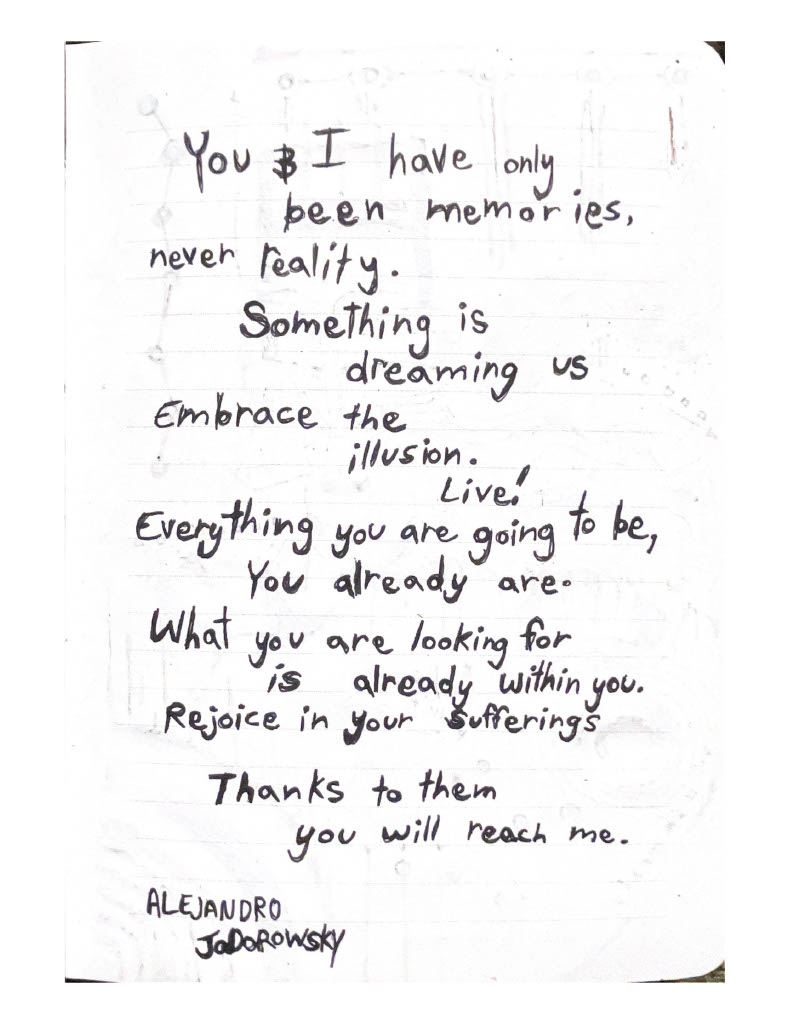 You & I have only
been memories,
never reality.
Something is
dreaming us
Embrace the
illusion.
Live!
Everything you are going to be,
You already are.
What you are looking for
is already within you.
Rejoice in your sufferings
Thanks to them
you will reach me.
ALEJANDRO
JODOROWSKY